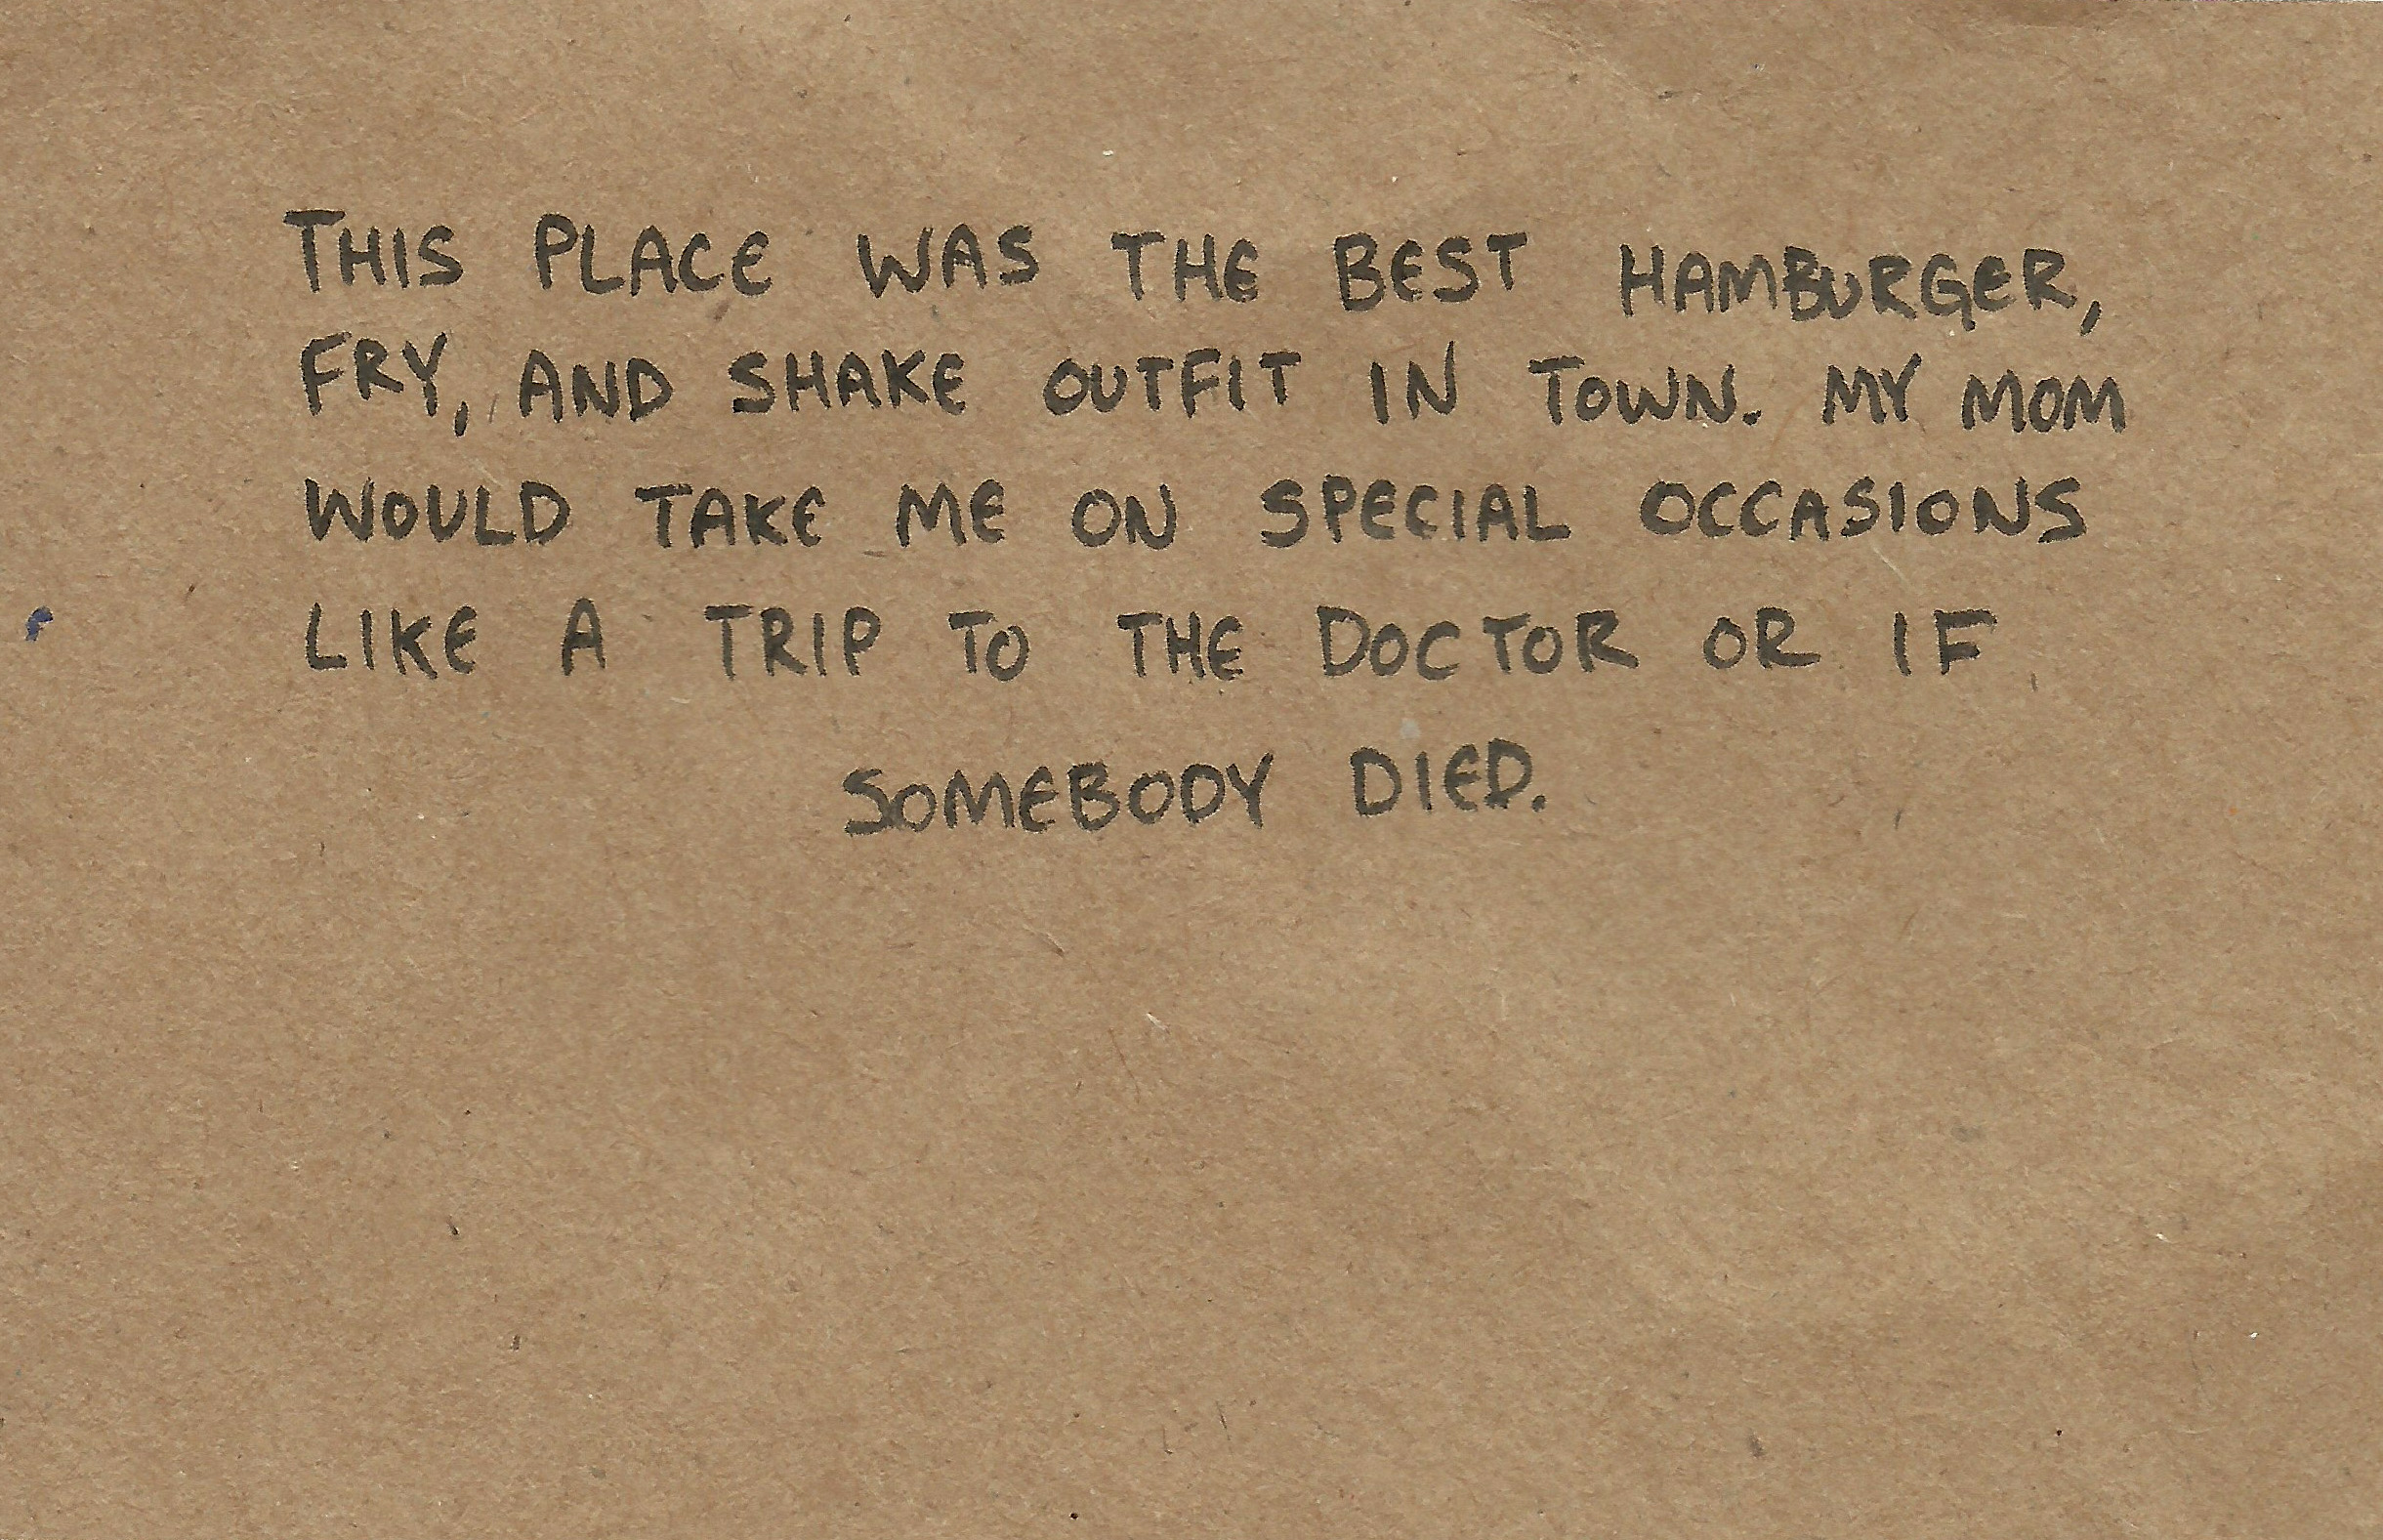 THIS PLACE WAS THE BEST HAMBURGER,
FRY, AND SHAKE OUTFIT IN TOWN. MY MOM
WOULD TAKE ME ON SPECIAL OCCASIONS
LIKE A TRIP TO THE DOCTOR OR IF
SOMEBODY DIED.